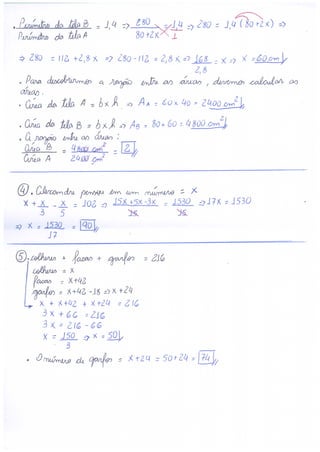 . Perímetro da tela B = 1,4 => 280 = 1,4 => 280 = 1,4 (80+2x) =>
Perímetro da tela A 80+2x 1
=> 280 = 112 + 2,8 x => 280-112 = 2,8 x => 168 = x => x = 60 cm
2,8
. Para descobrirmos a razão entre as áreas, devemos calcular as
áreas.
. Área da tela A = b x h => AA = 60 x 40 = 2400 cm²
. Área da tela B = b x h => AB = 80 * 60 = 4800 cm²
. A razão entre as áreas:
Área B = 4800 cm² = 2
Área A 2400 cm²
4). Alexandre pensou em um número = x
x + x - x = 102 => 15x+5x-3x = 1530 => 17x = 1530
3 5 15 15
=> x = 1530 = 90
17
5). colheres + facas + garfos = 216
colheres = x
facas = x+42
garfos = x+42 -18 => x + 24
x + x+42 + x+24 = 216
3x + 66 = 216
3x = 216 - 66
x = 150 => x = 50
3
. O número de garfos = x+24 = 50+24 = 74